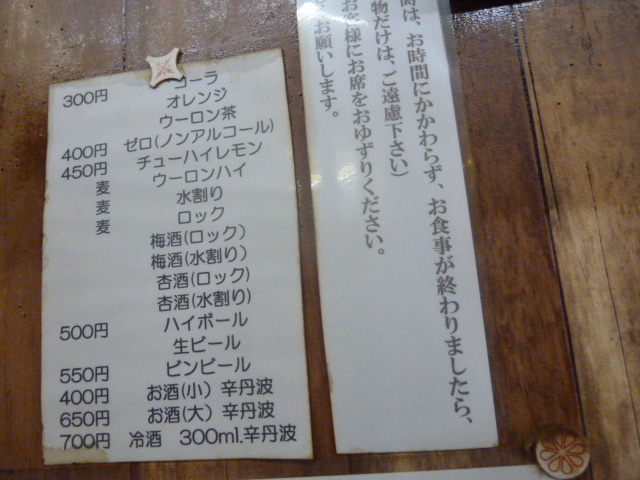 300円 コーラ
オレンジ
ウーロン茶
400円 ゼロ(ノンアルコール)
450円 チューハイレモン
麦 ウーロンハイ
麦 水割り
麦 ロック
梅酒(ロック)
梅酒(水割り)
杏酒(ロック)
杏酒(水割り)
500円 ハイボール
生ビール
550円 ビンビール
400円 お酒(小) 辛丹波
650円 お酒(大) 辛丹波
700円 冷酒 300ml.辛丹波
は、お時間にかかわらず、お食事が終わりましたら、
物だけは、ご遠慮下さい)
お客様にお席をおゆずりください。
お願いします。